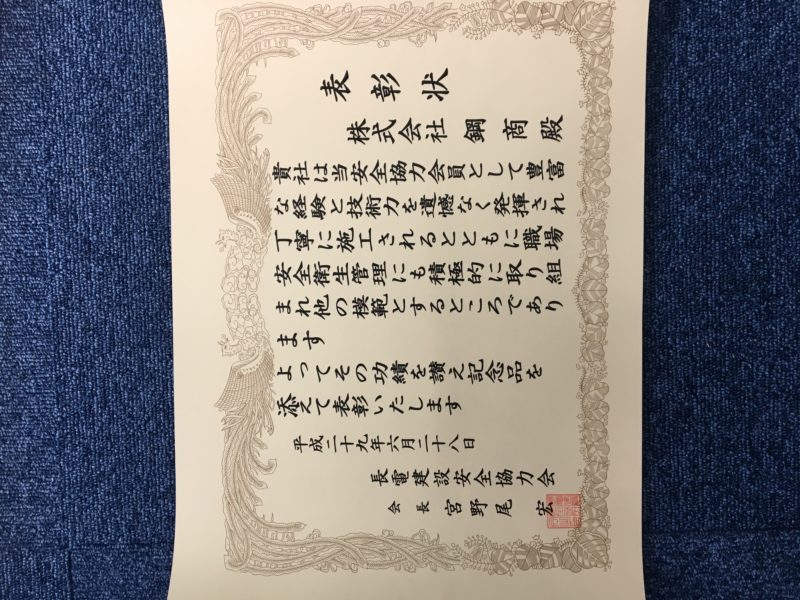 表彰状
株式会社 鋼商 殿
貴社は当安全協力会員として豊富
な経験と技術力を遺憾なく発揮され
丁寧に施工されるとともに職場
安全衛生管理にも積極的に取り組
まれ他の模範とするところであり
ます
よってその功績を讃え記念品を
添えて表彰いたします
平成二十九年六月二十八日
長電建設安全協力会
会長 宮野尾 宏